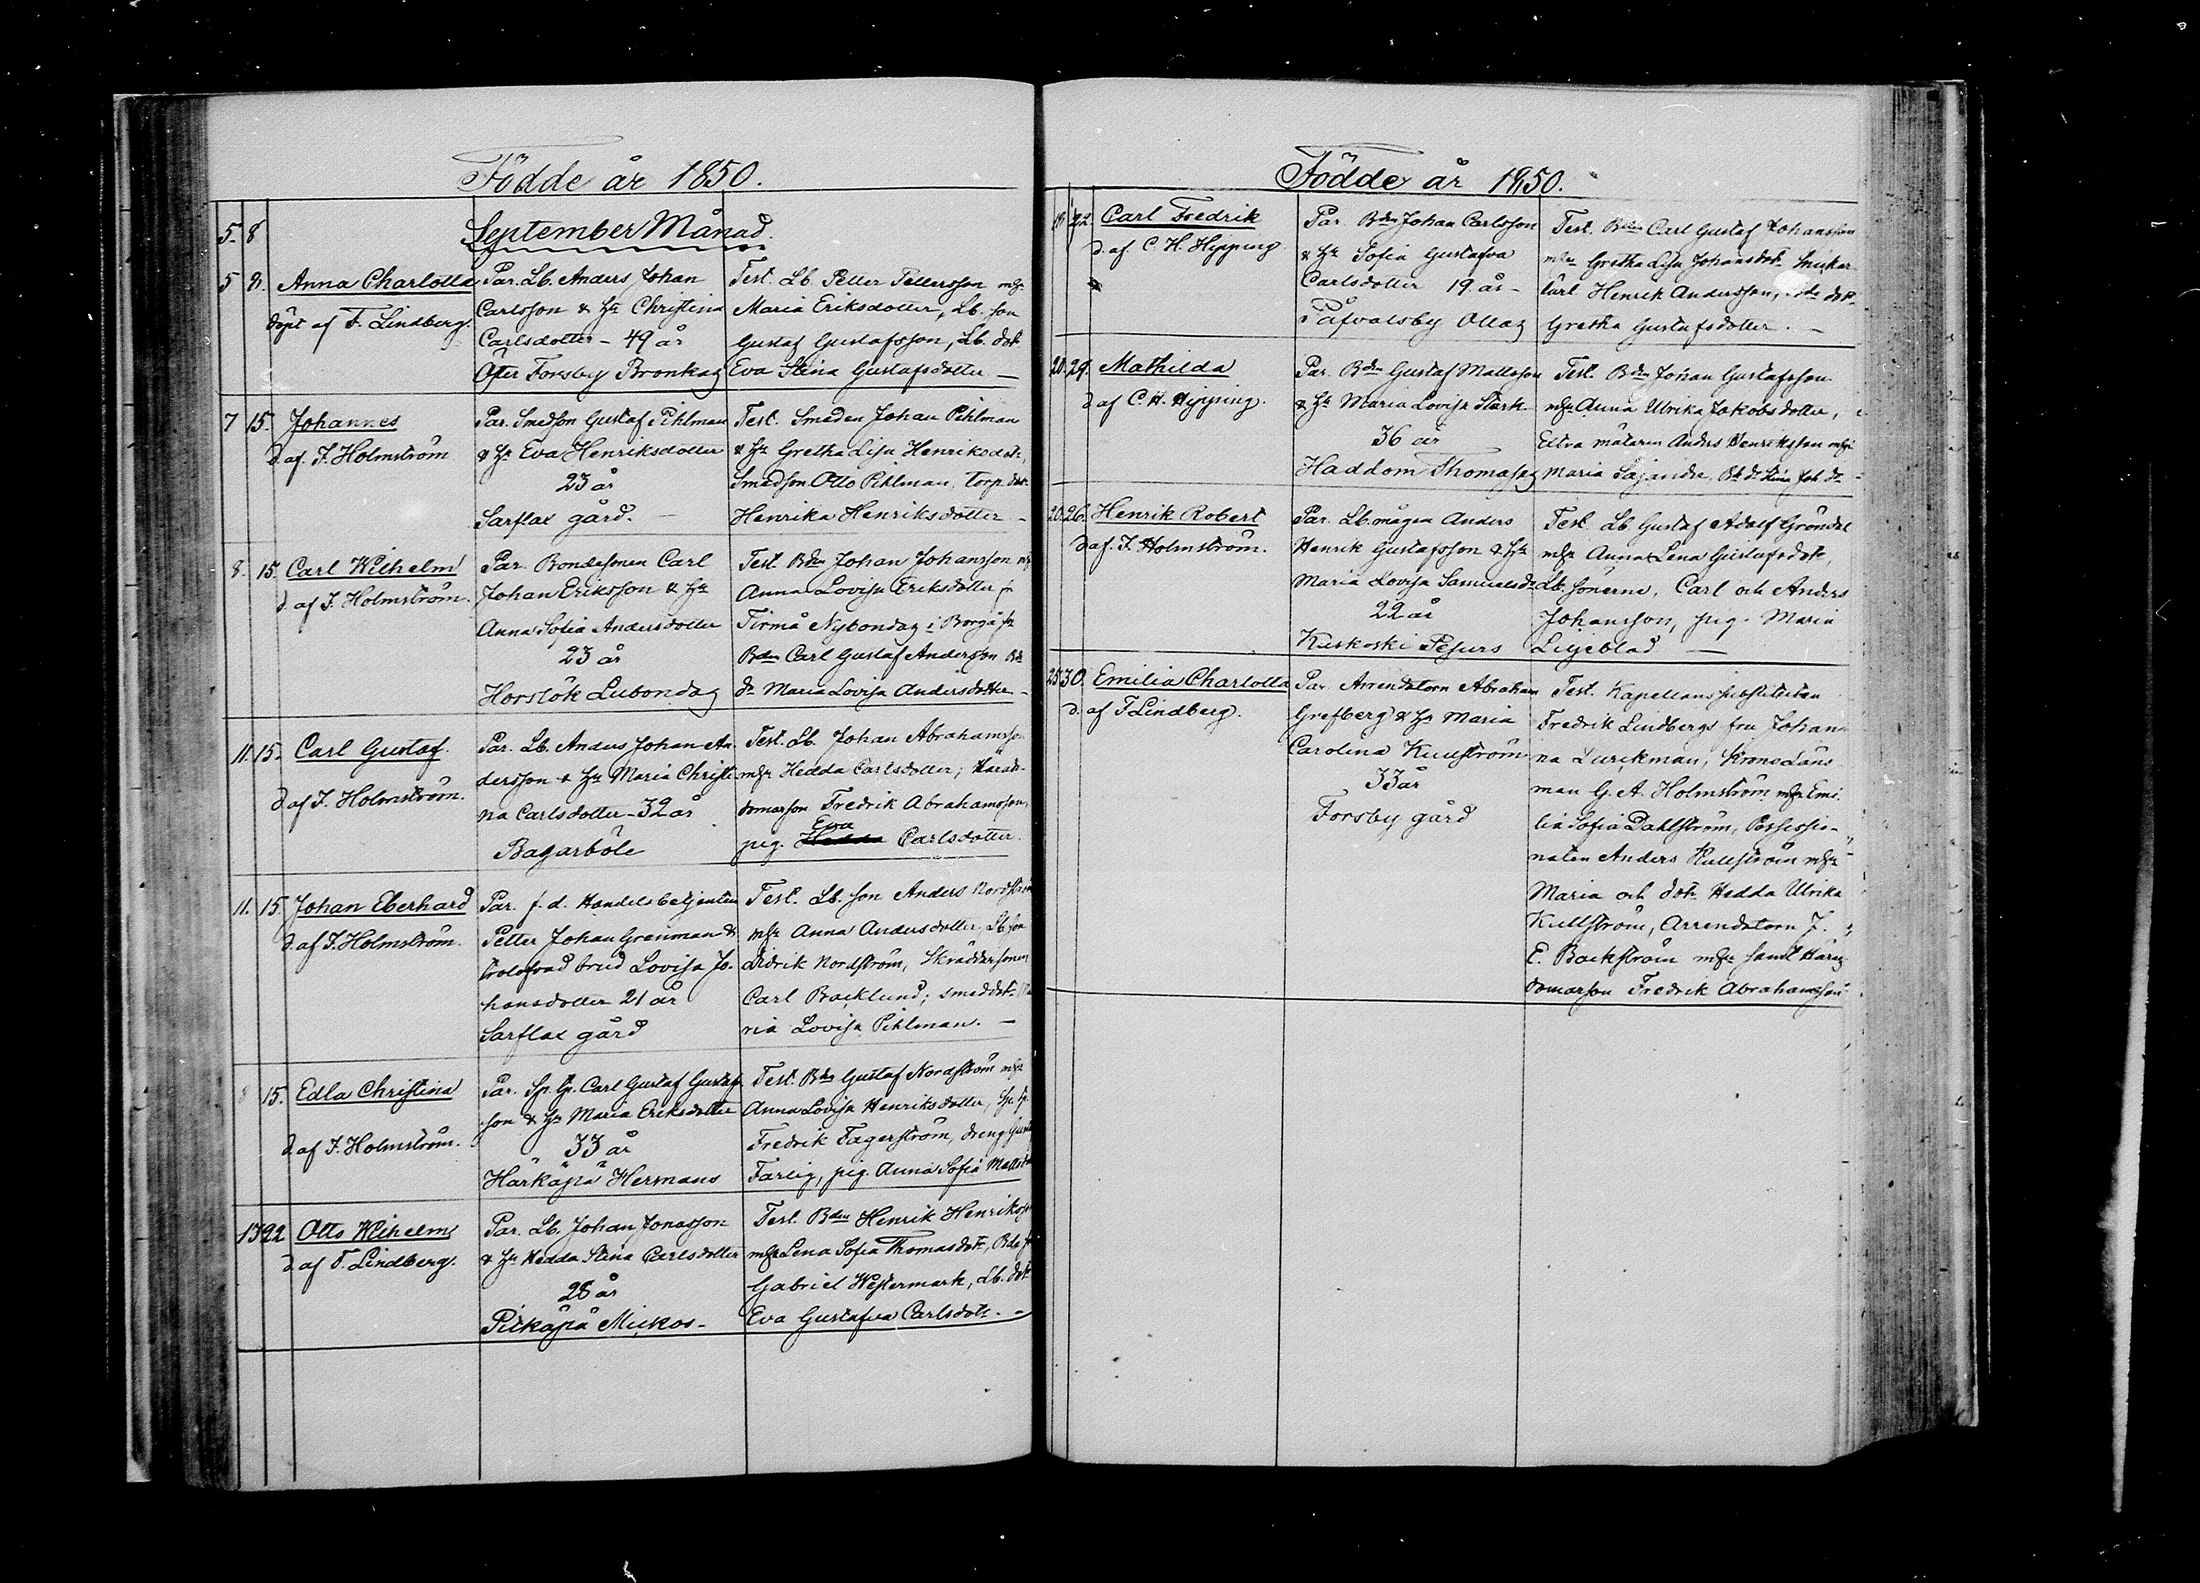 Födde år 1850.
5. 8
September Månad.
5 8. Anna Charlotta
döpt af F. Lindberg.
Par. Lb. Anders Johan
Carlsson & Hr Christina
Carlsdotter - 49 år
Öfver Forsby Bronkas
Test. Lb. Petter Pettersson mhr
Maria Eriksdotter, Lb. son
Gustaf Gustafsson, Lb. dot.
Eva Stina Gustafsdotter -
7 15. Johannes
d. af. F. Holmström
Par. Smedson Gustaf Pihlman
& Hr Eva Henriksdotter
23 år
Sarflax gård. -
Test. Smeden Johan Pihlman
& Hr Gretha Lisa Henriksdotr,
Smedson Otto Pihlman, Torp. dotr
Henrika Henriksdotter -
8. 15. Carl Wilhelm
d. af F. Holmström.
Par. Bondesonen Carl
Johan Eriksson & Hr
Anna Sofia Andersdotter
23 år
Horslök Lubondas
Test. Bden Johan Johansson mhr
Anna Lovisa Eriksdotter fr
Tirmå Nybondas i Borgå sn
Bden Carl Gustaf Andersson Bde
dr Maria Lovisa Andersdotter -
11. 15. Carl Gustaf.
d. af F. Holmström.
Par. Lb. Anders Johan An-
dersson & Hr Maria Christi
na Carlsdotter - 32 år
Bagarböle
Test. Lb. Johan Abrahamsson
mhr Hedda Carlsdotter; Härads-
domarson Fredrik Abrahamsson,
Eva
pig. Hedda Carlsdotter.
11. 15. Johan Eberhard
d. af F. Holmström.
Par. f. d. Handelsbetjenten
Petter Johan Grenman &
trolofvad brud Lovisa Jo-
hansdotter 21 år
Sarflax gård
Test. Lb. son Anders Nordström
mhr Anna Andersdotter, Lb son
Didrik Nordström, Skräddersonen
Carl Backlund; smeddotr Ma
ria Lovisa Pihlman. -
8 15. Edla Christina
d. af F. Holmström.
Par. Sp. Tp. Carl Gustaf Gustafs
son & Hr Maria Eriksdotter
33 år
Härkäpä Hermans
Test. Bden Gustaf Nordström mhr
Anna Lovisa Henriksdotter,
Fredrik Fagerström, dreng
Farlig, pig. Anna Sofia Matts
17 22 Otto Wilhelm
d. af F. Lindberg.
Par. Lb. Johan Jonasson
& Hr Hedda Stina Carlsdotter
28 år
Pitkäpä Mickos -
Test. Bden Henrik Henriksson
mhr Lena Sofia Thomasdotr, Bde
Gabriel Westermark, Lb. dotr
Eva Gustafva Carlsdotr. -
Födde år 1850.
19 22 Carl Fredrik
d. af C. H. Hipping
Par. Bden Johan Carlsson
& Hr Sofia Gustafva
Carlsdotter 19. år -
Påfvalsby Ollas
Test. Bden Carl Gustaf Johansson
mhr Gretha Lisa Johansdotr. Snickar
karl Henrik Andersson, dotr
Gretha Gustafsdotter. -
20. 29. Mathilda
d af C. H. Hipping.
Par. Bden Gustaf Mattsson
& Hr Maria Lovisa Stark
36 år
Haddom Thomasas
Test. Bden Johan Gustafsson
mhr Anna Ulrika Jakobsdotter,
Extra mätaren Anders Henriksson mhr
Maria Sajander, Bd dr Stina Joh dr
20 26. Henrik Robert
d af. F. Holmström.
Par. Lb. mågen Anders
Henrik Gustafsson & Hr
Maria Lovisa Samuelsdr
22 år
Kuskoski Pesurs
Test. Lb Gustaf Adolf Gröndal
mhr Anna Lena Gustafsdotr,
Lb. sönerne, Carl och Anders
Johansson, pig. Maria
Liljeblad -
25 30. Emilia Charlotta
d. af F Lindberg.
Par. Arrendatorn Abraham
Grefberg & Hr Maria
Carolina Kullström
33 år
Forsby gård
Test. Kapellanssubstituten
Fredrik Lindbergs fru Johan-
na Lurckman, Kronoläns
man G. A. Holmström mhr Emi-
lia Sofia Dahlström, Possessio-
naten Anders Kullström mhr
Maria och dotr Hedda Ulrika
Kullström, Arrendatorn J.
E. Backström mhr samt Härads
domarson Fredrik Abrahamsson